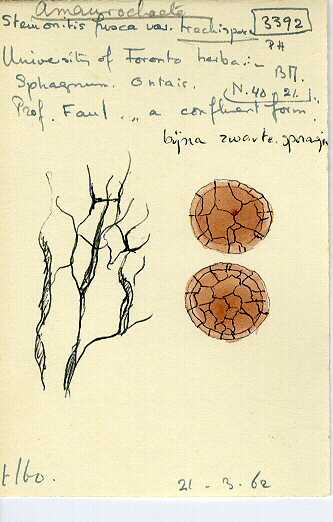 Amaurochaete
Stemonitis fusca var. trachispora 3392
PH
University of Toronto herbar.
Sphagnum. Ontar. N. 40 21.
Prof. Faul. „ a confluent form.
bijna zwarte
21 - 3 - 62